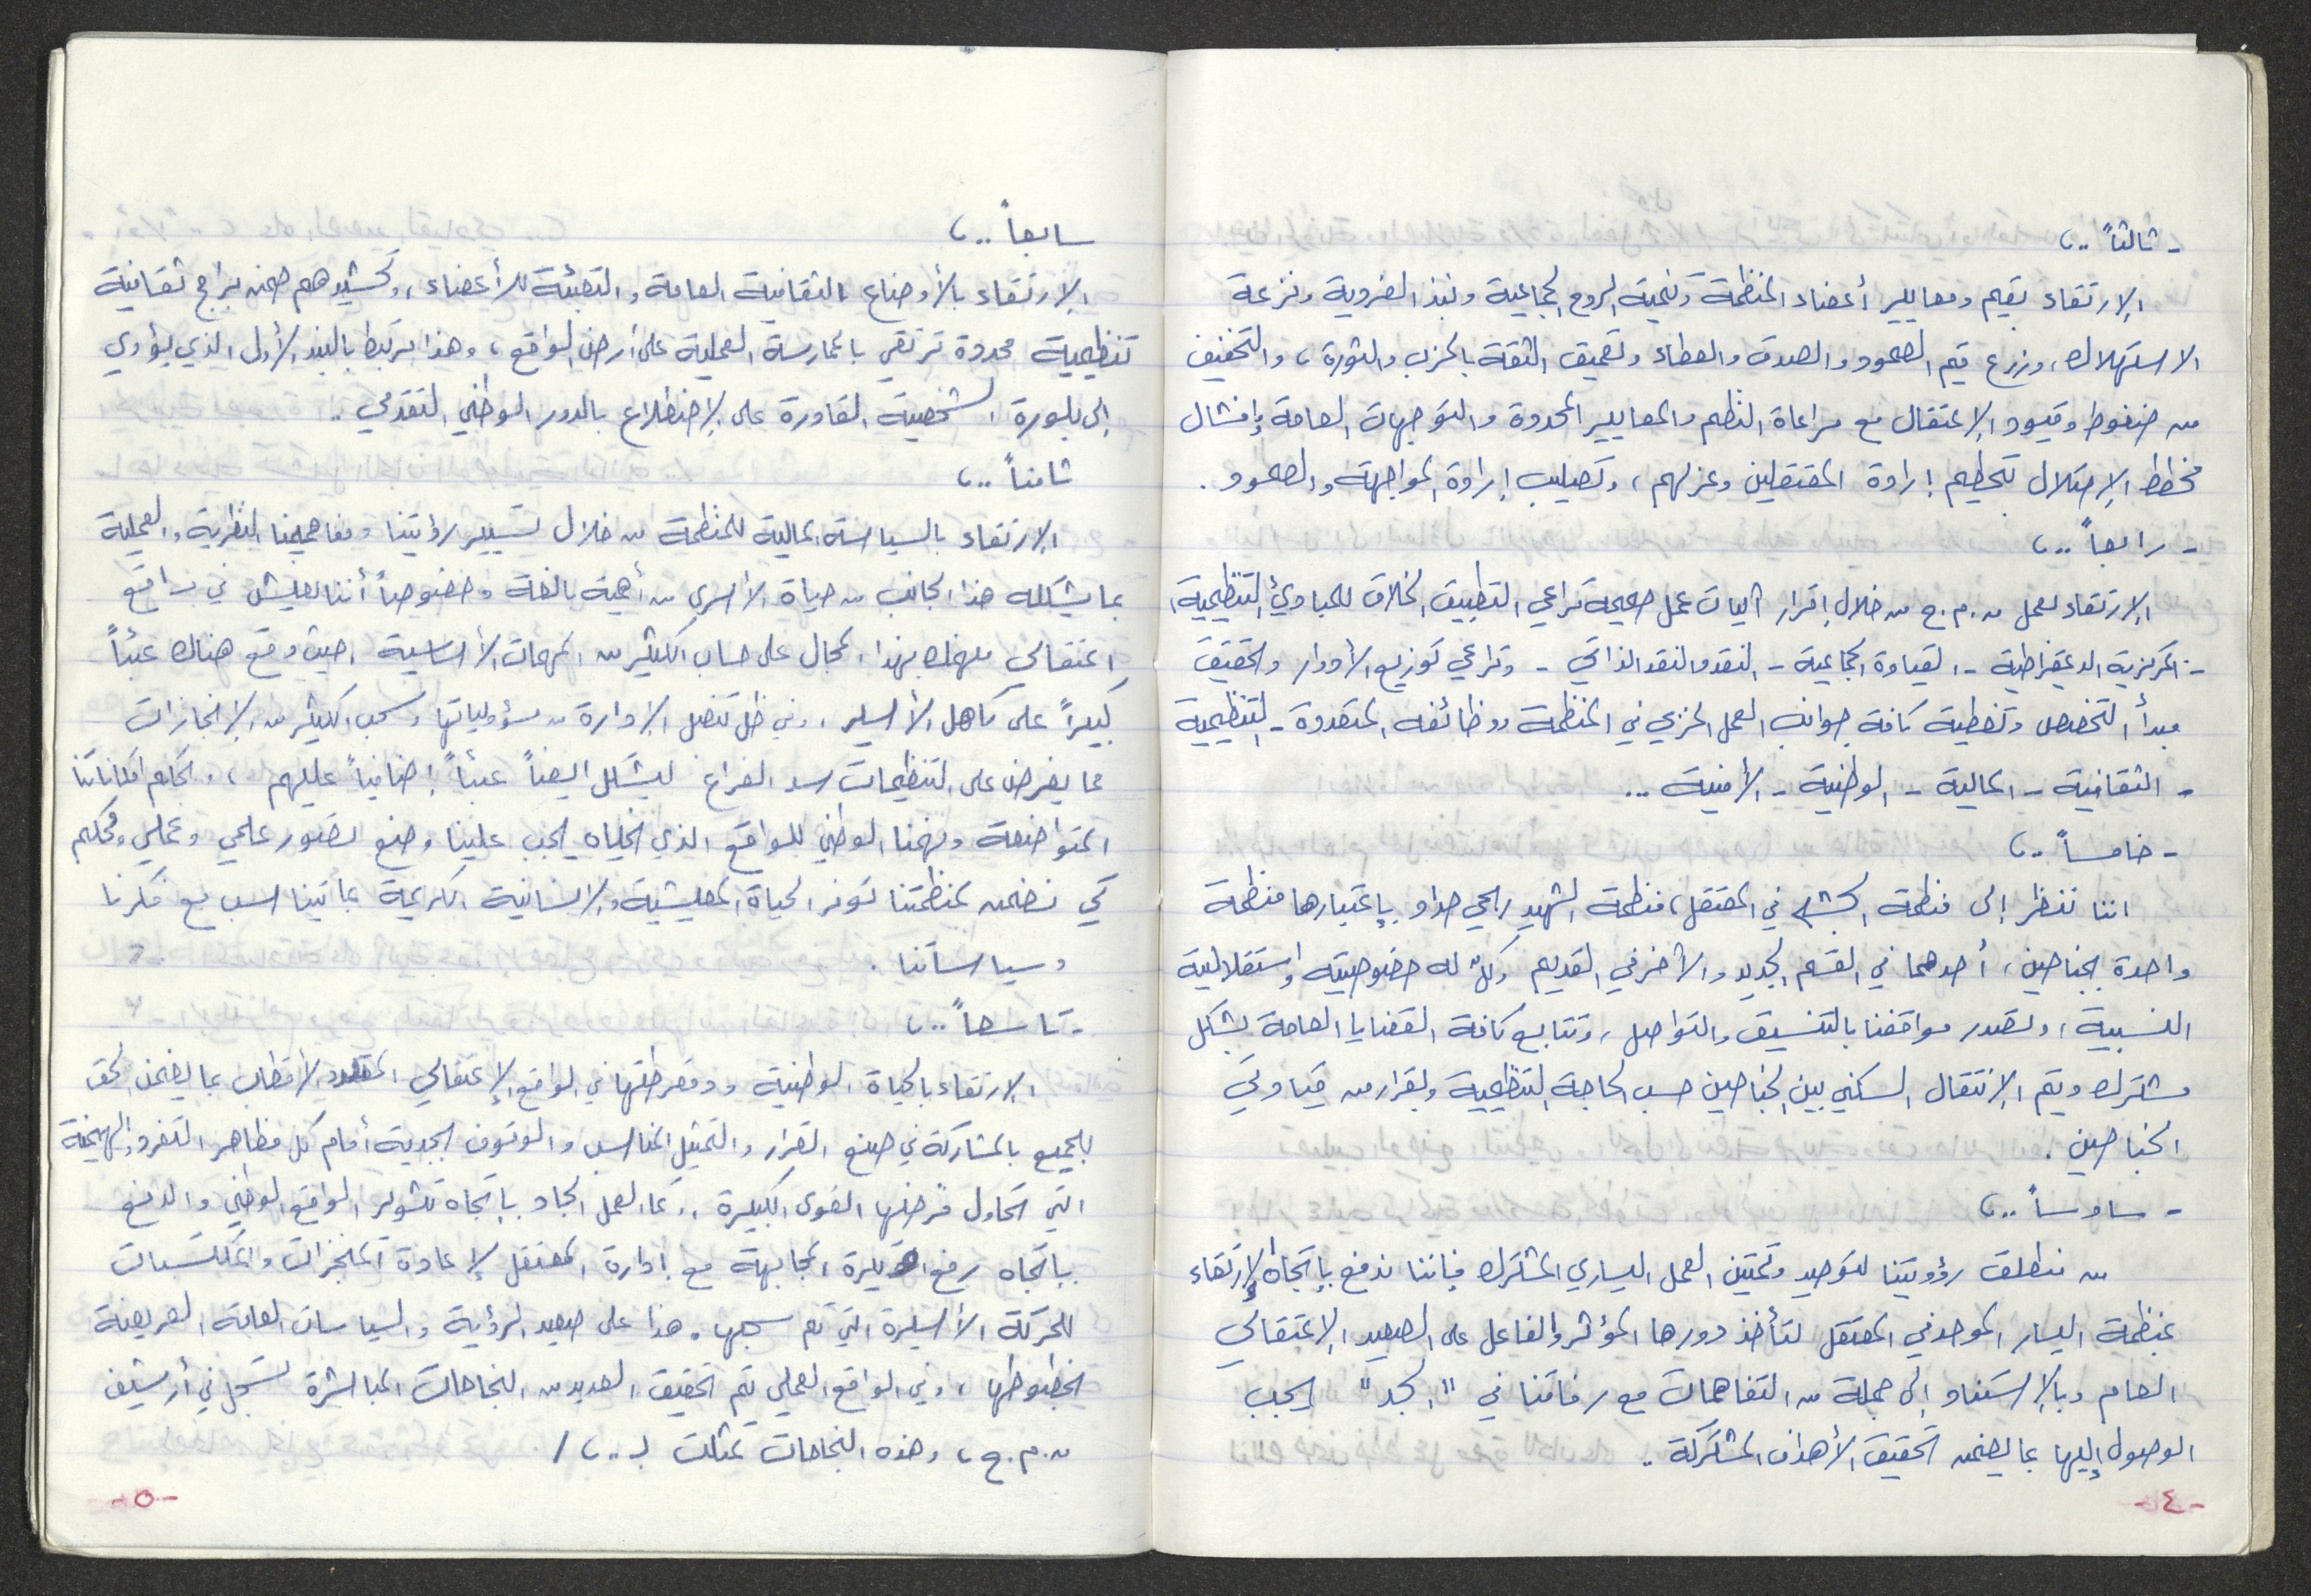 - ثالثاً ..،
الإرتقاء بقيم ومعايير أعضاء المنظمة وتنمية الروح الجماعية ونبذ الفردية ونزعة
الاستهلاك، وزرع قيم الصمود والصدق والعطاء وتعميق الثقة بالحزب والثورة، والتخفيف
من ضغوط وقيود الإعتقال مع مراعاة النظم والمعايير المحددة والتوجهات العامة وإفشال
مخطط الإحتلال بتحطيم إرادة المعتقلين وعزلهم، وتصليب إرادة المواجهة والصمود .
- رابعاً ..،
الإرتقاء بعمل ل.م.ح من خلال إقرار آليات عمل صحيحة تراعي التطبيق الخلاق للمبادئ التنظيمية،
- المركزية الديمقراطية - القيادة الجماعية - النقد والنقد الذاتي - وتراعي توزيع الأدوار وتحقيق
مبدأ التخصص وتغطية كافة جوانب العمل الحزبي في المنظمة ووظائفه المتعددة - التنظيمية
- الثقافية - المالية - الوطنية - الأمنية ..
- خامساً ..،
اننا ننظر إلى منظمة الجبهة في المعتقل، منظمة الشهيد ربحي حداد بإعتبارها منظمة
واحدة بجناحين، أحدهما في القسم الجديد والآخر في القديم وكلٌ له خصوصيته واستقلاليته
النسبية، وتصدر مواقفنا بالتنسيق والتواصل، وتتابع كافة القضايا العامة بشكل
مشترك ويتم الإنتقال السكني بين الجناحين حسب الحاجة التنظيمية وبقرار من قيادتي
الجناحين .
- سادساً ..،
من منطلق رؤويتنا لتوحيد وتمتين العمل اليساري المشترك فإننا ندفع بإتجاه الإرتقاء
بمنظمة اليسار الموحد في المعتقل لتأخذ دورها المؤثر والفاعل على الصعيد الإعتقالي
العام وبالإستناد إلى جملة من التفاهمات مع رفاقنا في " الجد " يجب
الوصول إليها بما يضمن تحقيق الأهداف المشتركة ..
- ٤ -
سابعاً ..،
الإرتقاء بالأوضاع الثقافية العامة والتعبئة للأعضاء، وتحشيدهم ضمن برامج ثقافية
تنظيمية محددة ترتقي بالممارسة العملية على أرض الواقع، وهذا يرتبط بالبند الأول الذي يؤدي
إلى بلورة الشخصية القادرة على الإضطلاع بالدور الوطني التقدمي ..
ثامناً ..،
الإرتقاء بالسياسة المالية للمنظمة من خلال تسيير رؤيتنا ومفاهيمنا النظرية والعملية
بما يشكله هذا الجانب من حياة الأسرى من أهمية بالغة وخصوصاً أننا نعيش في واقع
اعتقالي منهك بهذا المجال على حساب الكثير من المهمات الأساسية، حيث وقع هناك عبئاً
كبيراً على كاهل الأسير، وفي ظل تنصل الإدارة من مسؤولياتها وسحب الكثير من الإنجازات
مما يفرض على التنظيمات سد الفراغ ليشكل ايضاً عبئاً إضافياً عليهم، وبحكم امكاناتنا
المتواضعة وفهمنا الوطني للواقع الذي نحياه يجب علينا وضع تصور علمي وعملي ومحكم
كي نضمن لمنظمتنا توفر الحياة المعيشية والإنسانية الكريمة بما يتناسب مع فكرنا
وسياساتنا .
- تاسعاً ..،
الإرتقاء بالحياة الوطنية ودمقرطتها في الواقع الإعتقالي المتعدد الأقطاب بما يضمن الحق
للجميع بالمشاركة في صنع القرار والتمثيل المناسب والوقوف بجدية أمام كل مظاهر التفرد والهيمنة
التي تحاول فرضها القوى الكبيرة، وكما العمل الجاد بإتجاه تثوير الواقع الوطني والدفع
بإتجاه رفع وتيرة المجابهة مع إدارة المعتقل لإعادة المنجزات والمكتسبات
للحركة الأسيرة التي تم سحبها. هذا على صعيد الرؤية والسياسات العامة العريضة
بخطوطها، وفي الواقع العملي تم تحقيق العديد من النجاحات المباشرة تسجل في أرشيف
ل.م.ح، وهذه النجاحات تمثلت بـ ..، /
- ٥ -